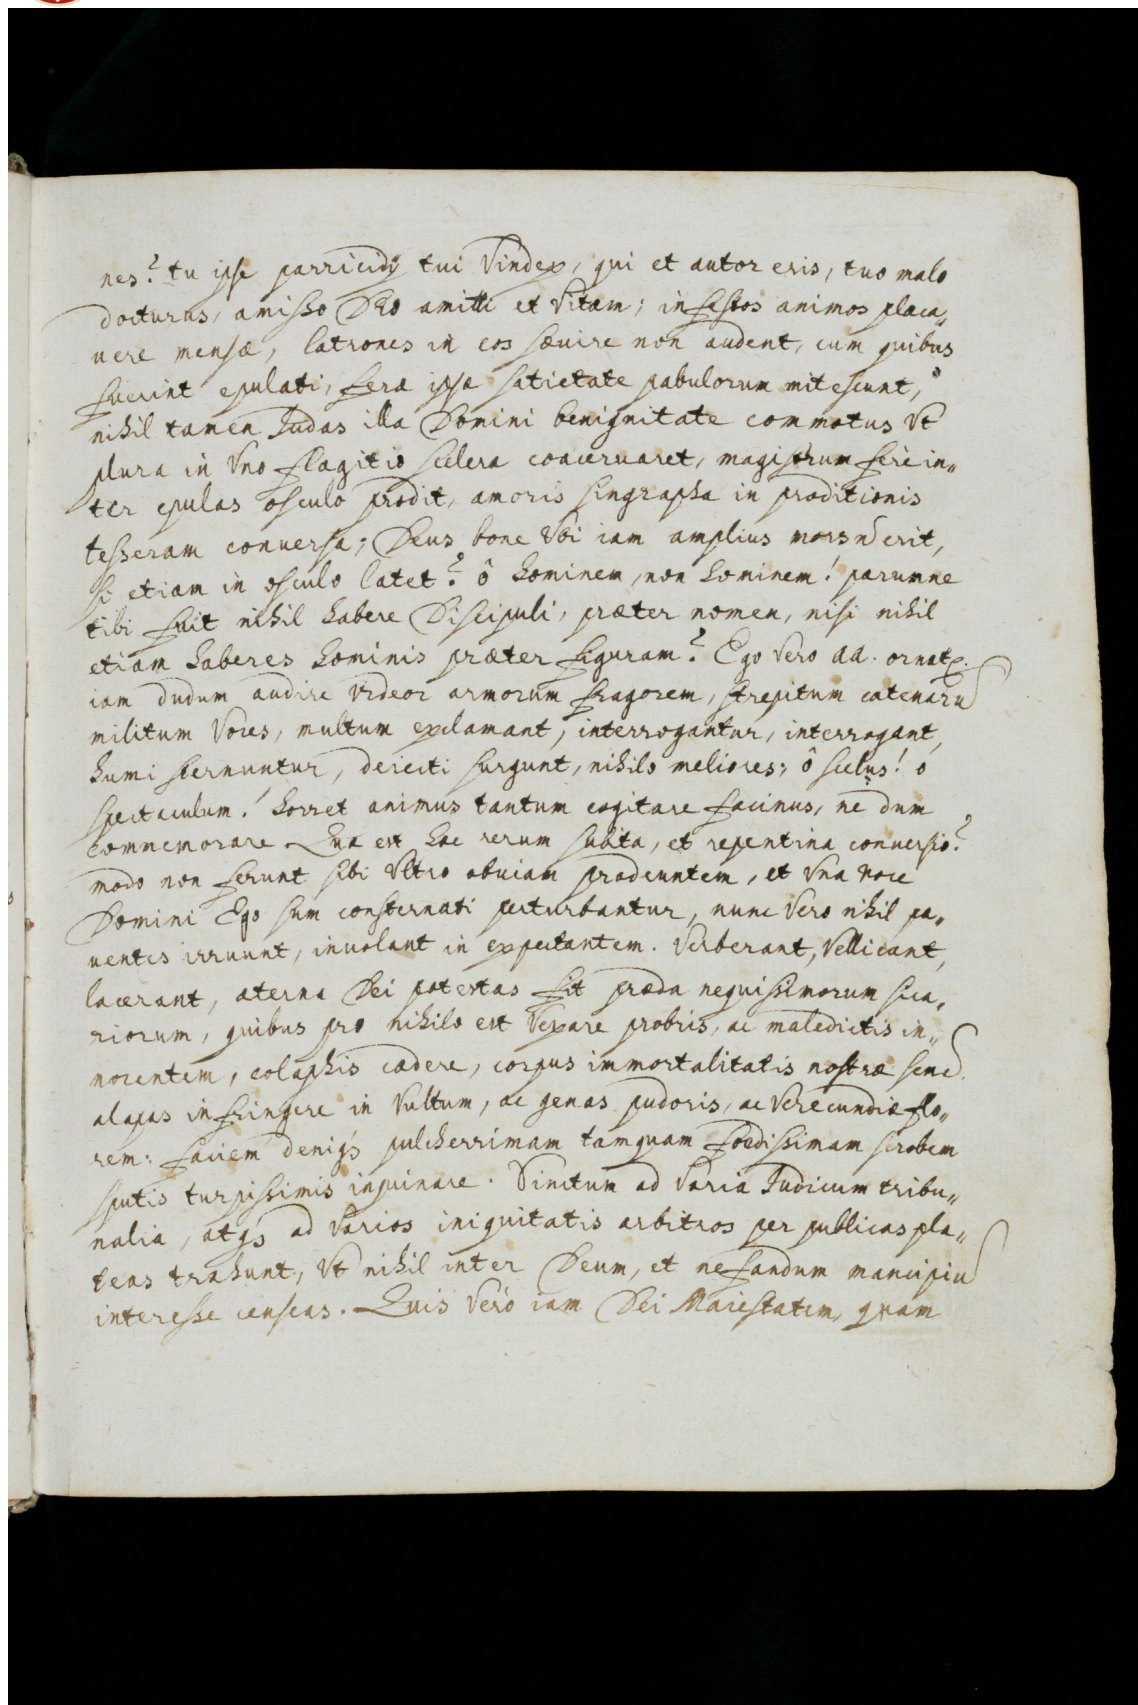 nes? tu ipse parricidij tui Vindex, qui et autor eris, tuo malo
docturus, amisso Deo amitti et Vitam; infestos animos placa„
uere mensæ, latrones in eos sæuire non audent, cum quibus
fuerint epulati, feræ ipsæ satietate pabulorum mitescunt,
nihil tamen Judas illa Domini benignitate commotus Vt
plura in Vno flagitio scelera coaceruaret, magistrum ferè in„
ter epulas osculo prodit, amoris singrapha in proditionis
tesseram conuersa; Deus bone Vbi iam amplius mors erit,
si etiam in osculo latet? ô hominem, non hominem! parumne
tibi fuit nihil habere Discipuli, præter nomen, nisi nihil
etiam haberes hominis præter figuram? Ego Vero aa. ornat.
iam dudum audire Videor armorum fragorem, strepitum catenarū
militum Voces, multum exclamant, interrogantur, interrogant,
humi sternuntur, deiecti surgunt, nihilo meliores; ô scelus! o
spectaculum! horret animus tantum cogitare facinus, ne dum
commemorare Quæ est hæc rerum subita, et repentina conuersio?
modo non ferunt sibi Vltro obuiam prodeuntem, et Vna voce
Domini Ego sum consternati perturbantur, nunc Vero nihil pa„
uentes irruunt, inuolant in expectantem. Verberant, Vellicant,
lacerant, æterna Dei potestas fit præda nequissimorum sica„
riorum, quibus pro nihilo est Vexare probris, ac maledictis in„
nocentem, colaphis cædere, corpus immortalitatis nostræ
alapas infringere in Vultum, ac genas pudoris, ac Verecundiæ flo„
rem: faciem deniqs pulcherrimam tamquam foedissimam scrobem
sputis turpissimis inquinare. Vinctum ad Varia Judicum tribu„
nalia, atqs ad Varios iniquitatis arbitros per publicas pla„
teas trahunt, Vt nihil inter Deum, et nefandum mancipiū
interesse censeas. Quis Verò iam Dei Maiestatem, quam